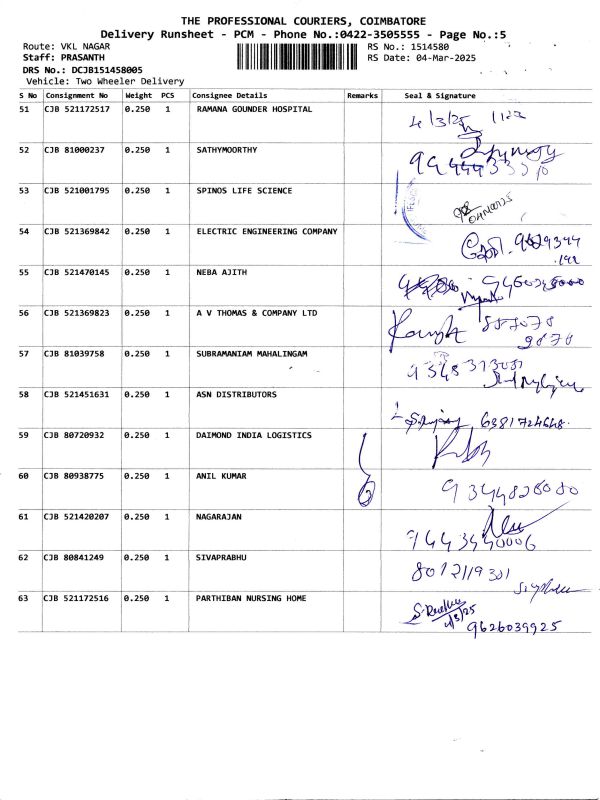 THE PROFESSIONAL COURIERS, COIMBATORE
Delivery Runsheet - PCM - Phone No.:0422-3505555 - Page No.:5
Route: VKL NAGAR RS No.: 1514580
Staff: PRASANTH RS Date: 04-Mar-2025
DRS No.: DCJB151458005
Vehicle: Two Wheeler Delivery
S No Consignment No Weight PCS Consignee Details Remarks Seal & Signature
51 CJB 521172517 0.250 1 RAMANA GOUNDER HOSPITAL
4/3/25
52 CJB 81000237 0.250 1 SATHYMOORTHY
53 CJB 521001795 0.250 1 SPINOS LIFE SCIENCE
04MAR2025
54 CJB 521369842 0.250 1 ELECTRIC ENGINEERING COMPANY
55 CJB 521470145 0.250 1 NEBA AJITH
56 CJB 521369823 0.250 1 A V THOMAS & COMPANY LTD
57 CJB 81039758 0.250 1 SUBRAMANIAM MAHALINGAM
58 CJB 521451631 0.250 1 ASN DISTRIBUTORS
6381724648
59 CJB 80720932 0.250 1 DAIMOND INDIA LOGISTICS
60 CJB 80938775 0.250 1 ANIL KUMAR
9344828080
61 CJB 521420207 0.250 1 NAGARAJAN
62 CJB 80841249 0.250 1 SIVAPRABHU
8012119301
63 CJB 521172516 0.250 1 PARTHIBAN NURSING HOME
9626039925